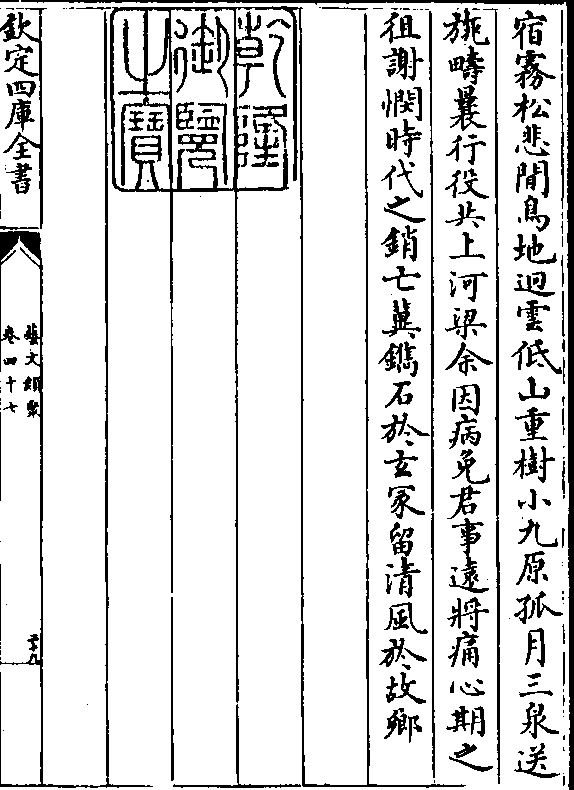 宿霧松悲間鳥地迥雲低山重樹小九原孤月三泉送
旐疇曩行役共上河梁余因病免君事遠將痛心期之
徂謝憫時代之銷亡冀鐫石於玄冢留清風於故鄉
乾隆
御覽
之寶
欽定四庫全書
藝文類聚
卷四十七